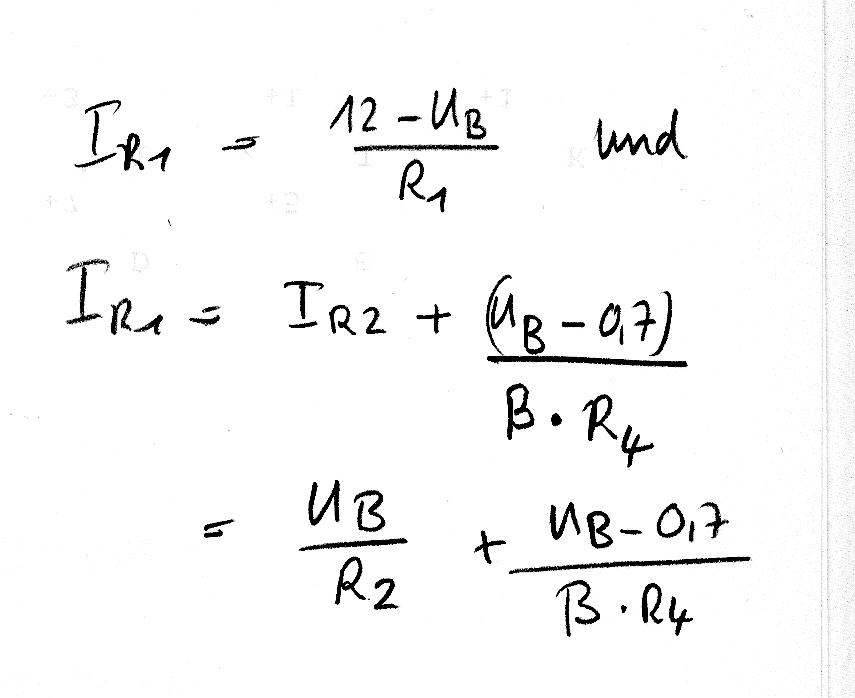 I_R1 = (12 - U_B) / R_1 und
I_R1 = I_R2 + (U_B - 0,7) / (B · R_4)
= U_B / R_2 + (U_B - 0,7) / (B · R_4)